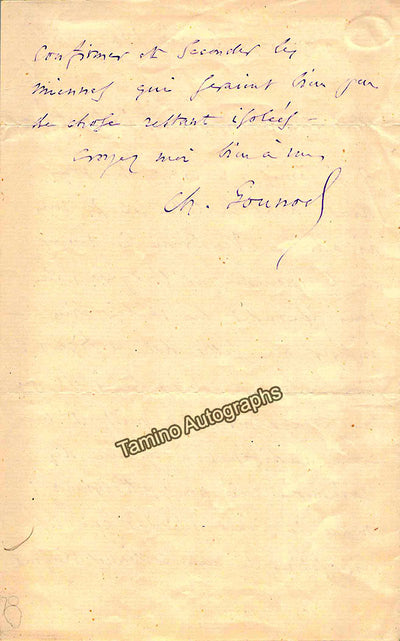 confirmer et seconder les
miennes qui seraient bien peu
de chose restant isolées –
croyez moi bien à vous
Ch. Gounod
Tamino Autographs
78